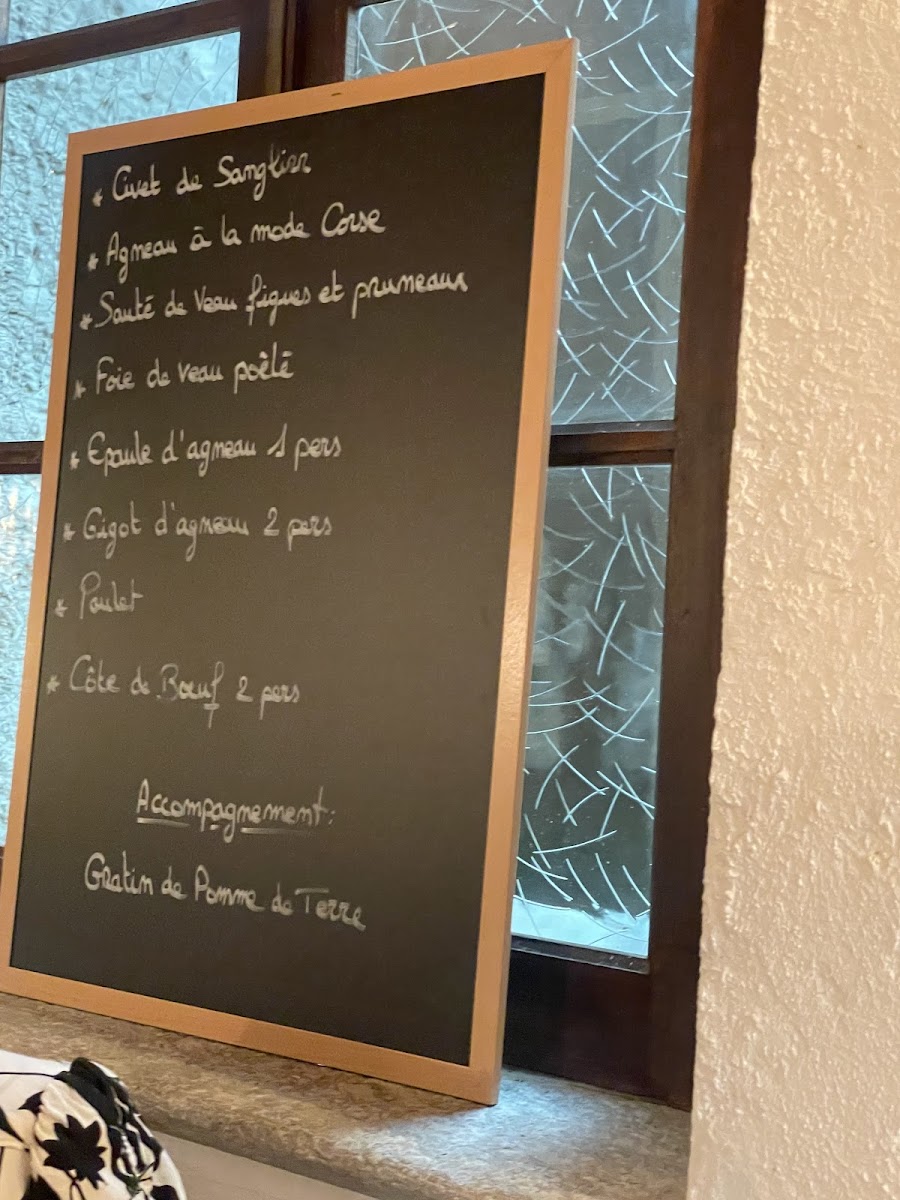 * Civet de Sanglier
* Agneau à la mode Corse
* Sauté de Veau figues et pruneaux
* Foie de veau poêlé
* Epaule d'agneau 1 pers
* Gigot d'agneau 2 pers
* Poulet
* Côte de Bœuf 2 pers
Accompagnement:
Gratin de Pomme de Terre